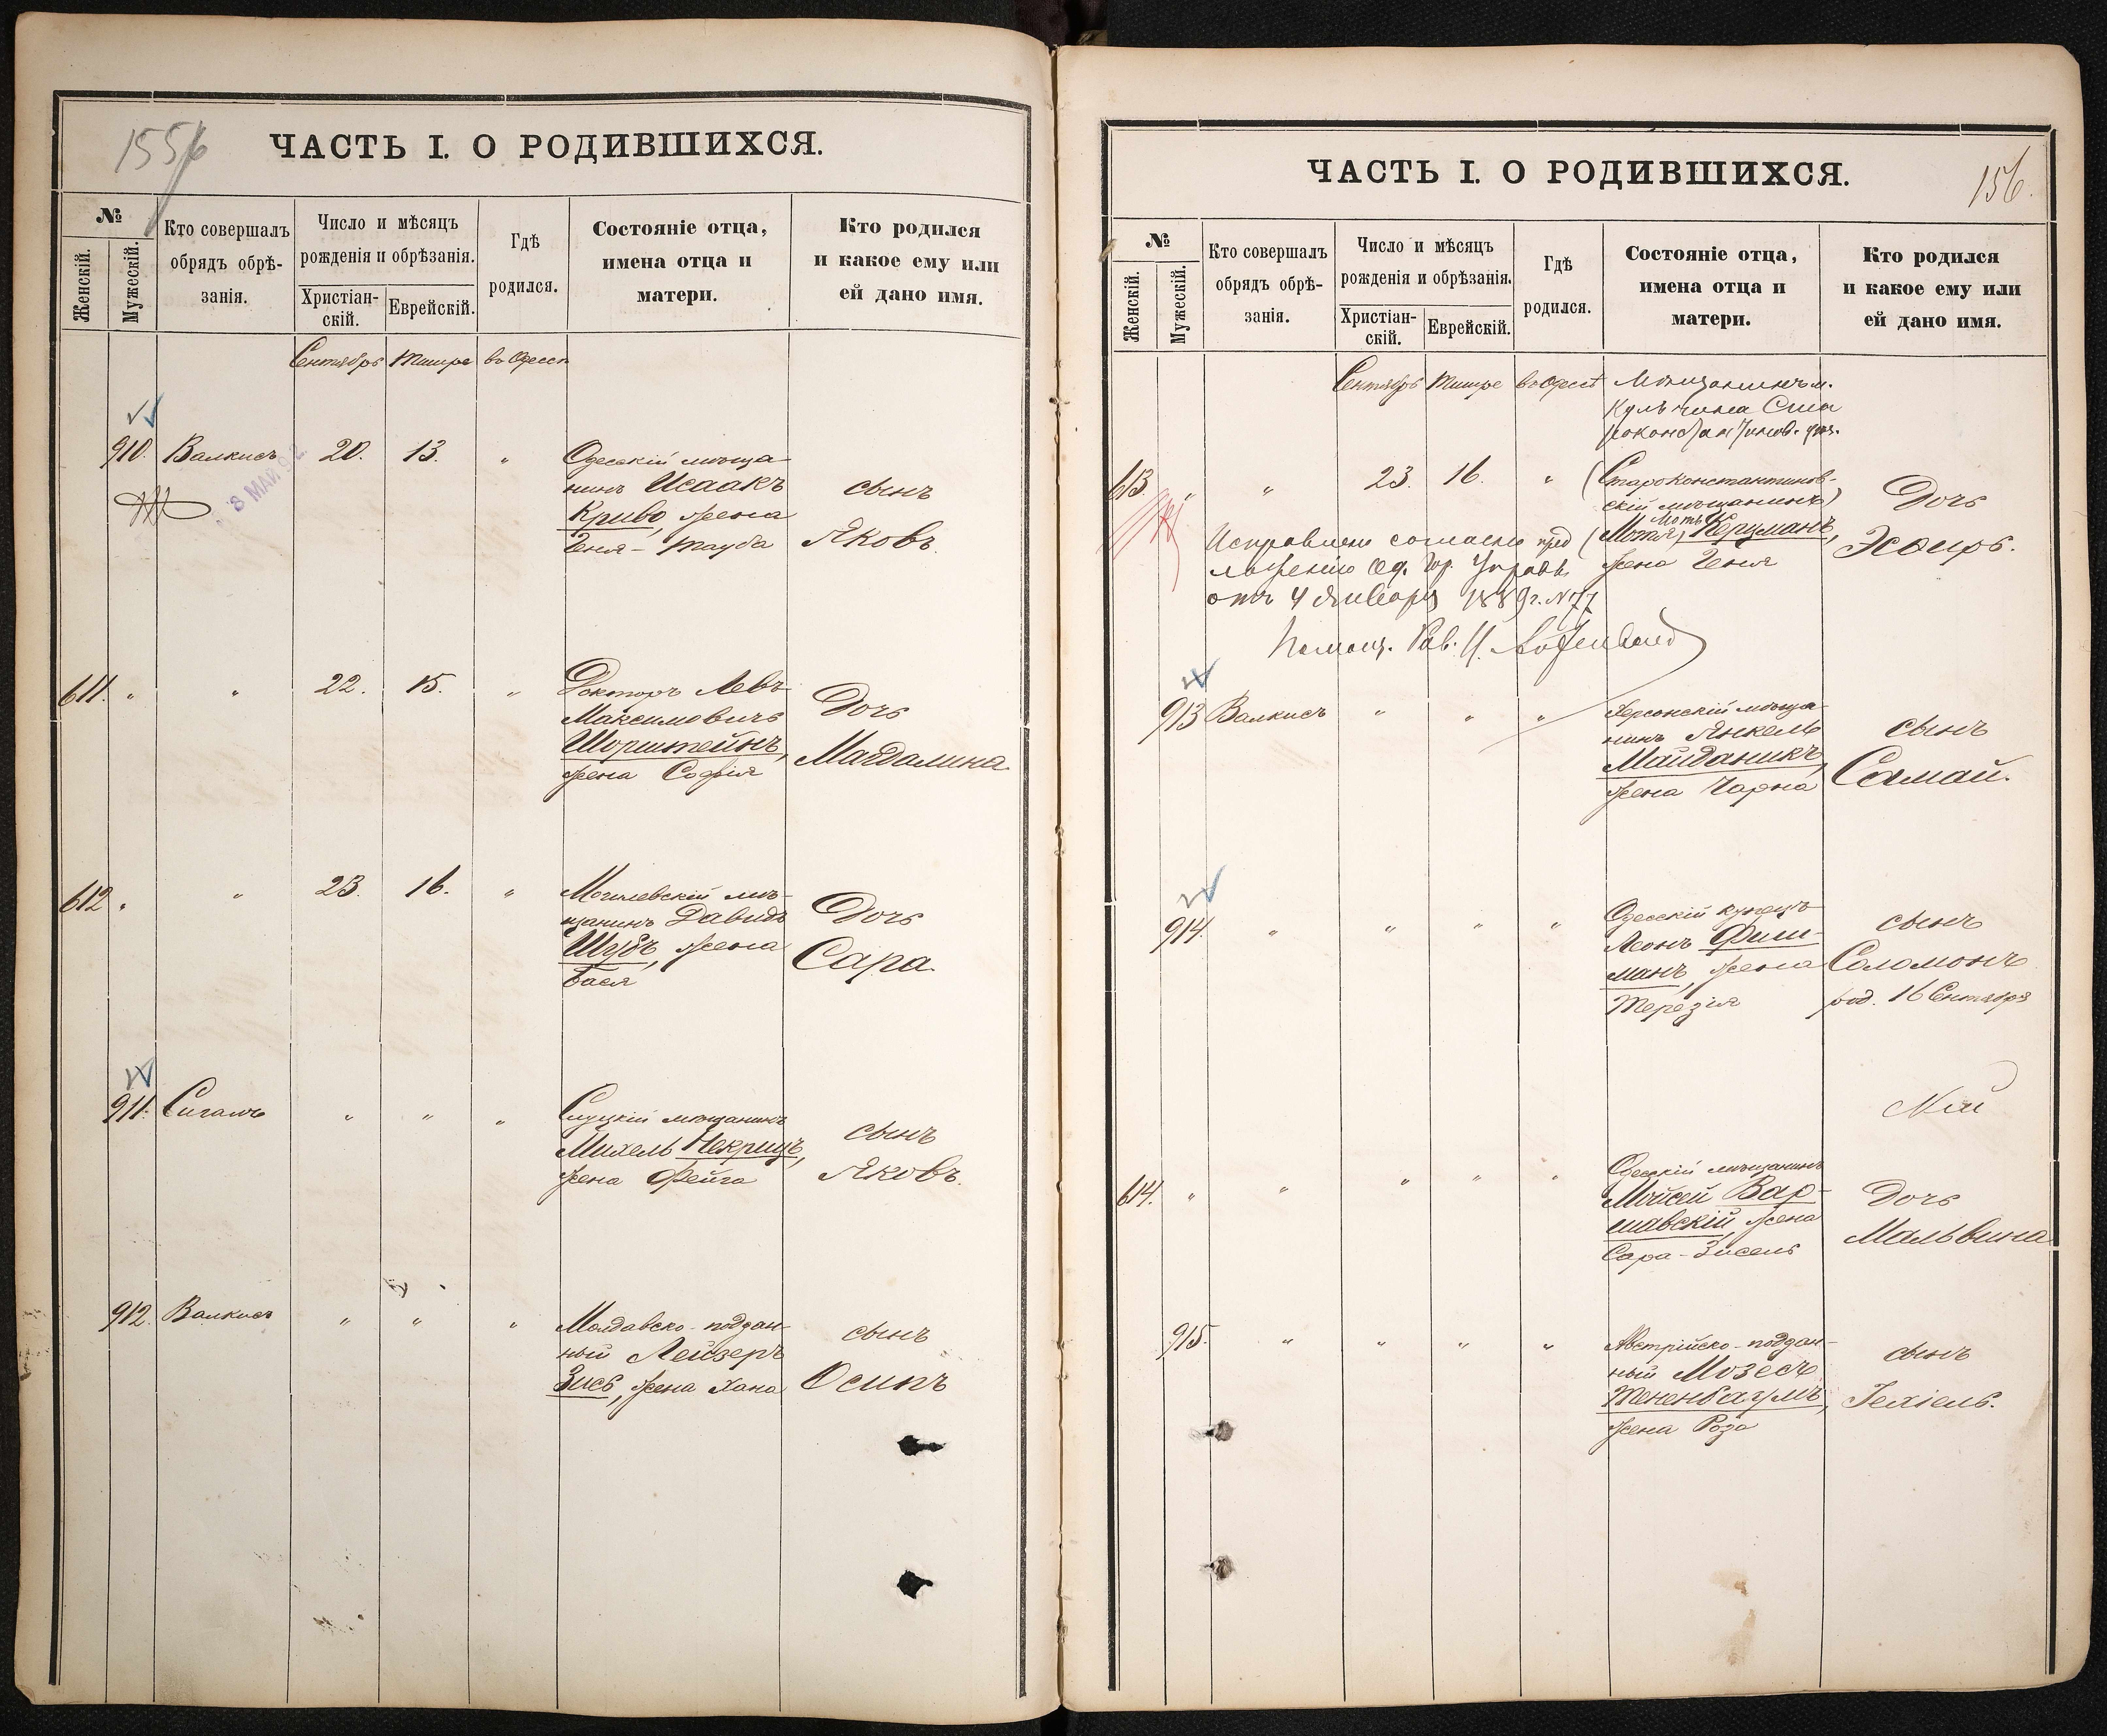 155
ЧАСТЬ I. О РОДИВШИХСЯ.
№
Женскій.
Мужескій.
Кто совершалъ
обрядъ обрѣ-
занія.
Число и мѣсяцъ
рожденія и обрѣзанія.
Христіан-
скій.
Еврейскій.
Гдѣ
родился.
Состояніе отца,
имена отца и
матери.
Кто родился
и какое ему или
ей дано имя.
Сентябрь Тишре въ Одессѣ
910. Валкисъ 20. 13. " Одесскій мѣща-
нинъ Исаакъ
Криво, жена
Геня-Тауба
сынъ
Яковъ.
8 МАЙ 92
611. " " 22. 15. " Докторъ Левъ
Максимовичъ
Шорштейнъ,
жена Софія
Дочь
Магдалина
612 " " 23. 16. " Могилевскій мѣ-
щанинъ Давидъ
Шубъ, жена
Бася
Дочь
Сара.
911. Сигалъ " " " Слуцкій мѣщанинъ
Михель Некрицъ,
жена Фейга
сынъ
Яковъ.
912. Валкисъ " " " Молдавско-поддан-
ный Лейзеръ
Зисъ, жена Хана
сынъ
Осипъ
ЧАСТЬ I. О РОДИВШИХСЯ.
156.
№
Женскій.
Мужескій.
Кто совершалъ
обрядъ обрѣ-
занія.
Число и мѣсяцъ
рожденія и обрѣзанія.
Христіан-
скій.
Еврейскій.
Гдѣ
родился.
Состояніе отца,
имена отца и
матери.
Кто родился
и какое ему или
ей дано имя.
Сентябрь Тишре въ Одессѣ Мѣщанинъ м.
Кульчина Ста
роконстантинов. уѣз.
613. " " 23. 16. " (Староконстантинов-
скій мѣщанинъ)
Мотъ
(Мотя) Керцманъ,
жена Геня
Дочь
Эсѳирь.
Исправлено согласно пред
ложенію Од. Гор. Управы
отъ 4 Января 1889 г. N 77
Помощ. Рав.
913 Валкисъ " " " Херсонскій мѣща-
нинъ Янкель
Майданикъ,
жена Чарна
сынъ
Самай.
914. " " " " Одесскій купецъ
Леонъ Фиш-
манъ, жена
Терезія
сынъ
Соломонъ
род. 16 Сентября
614. " " " " " Одесскій мѣщанинъ
Мойсей Вар-
шавскій, жена
Сара-Зисель
Дочь
Мальвина
915. " " " " Австрійско-поддан-
ный Мозесъ
Тененбаумъ,
жена Роза
сынъ
Іехіель.